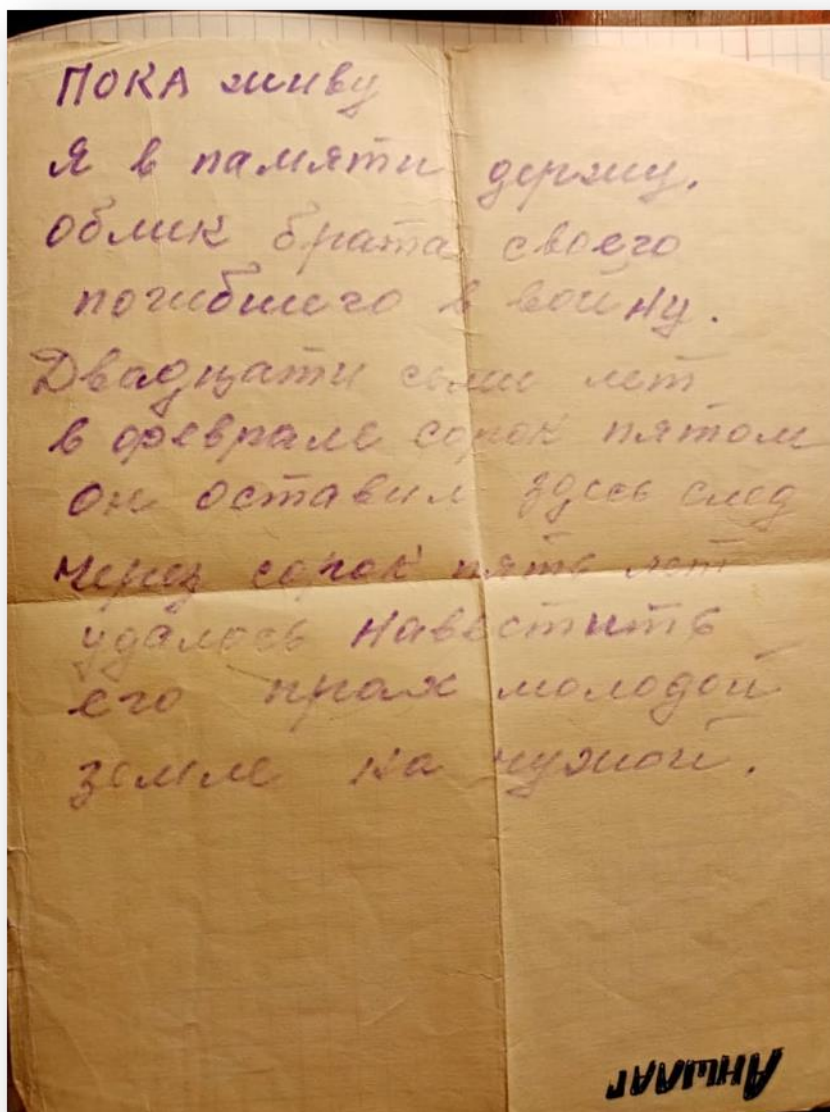 ПОКА живу
Я в памяти держу.
облик брата своего
погибшего в войну.
Двадцати семи лет
в феврале сорок пятом
он оставил здесь след
через сорок пять лет
удалось навестить
его прах молодой
земле на чужой.
Аншлаг